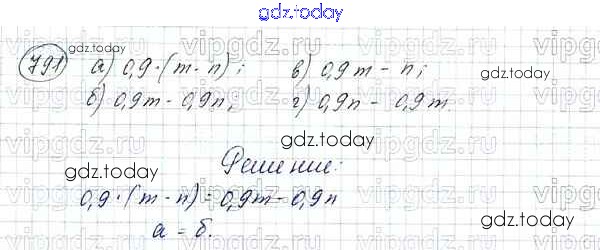 gdz.today
791 а) 0,9·(m-n); в) 0,9m-n;
б) 0,9m-0,9n; г) 0,9n-0,9m.
gdz.today
gdz.today
gdz.today
Решение:
gdz.today
0,9·(m-n)=0,9m-0,9n
а=б.
gdz.today